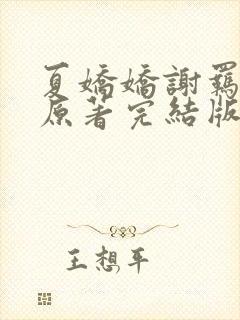 夏嬌嬌謝羈
原著完結版
王想平